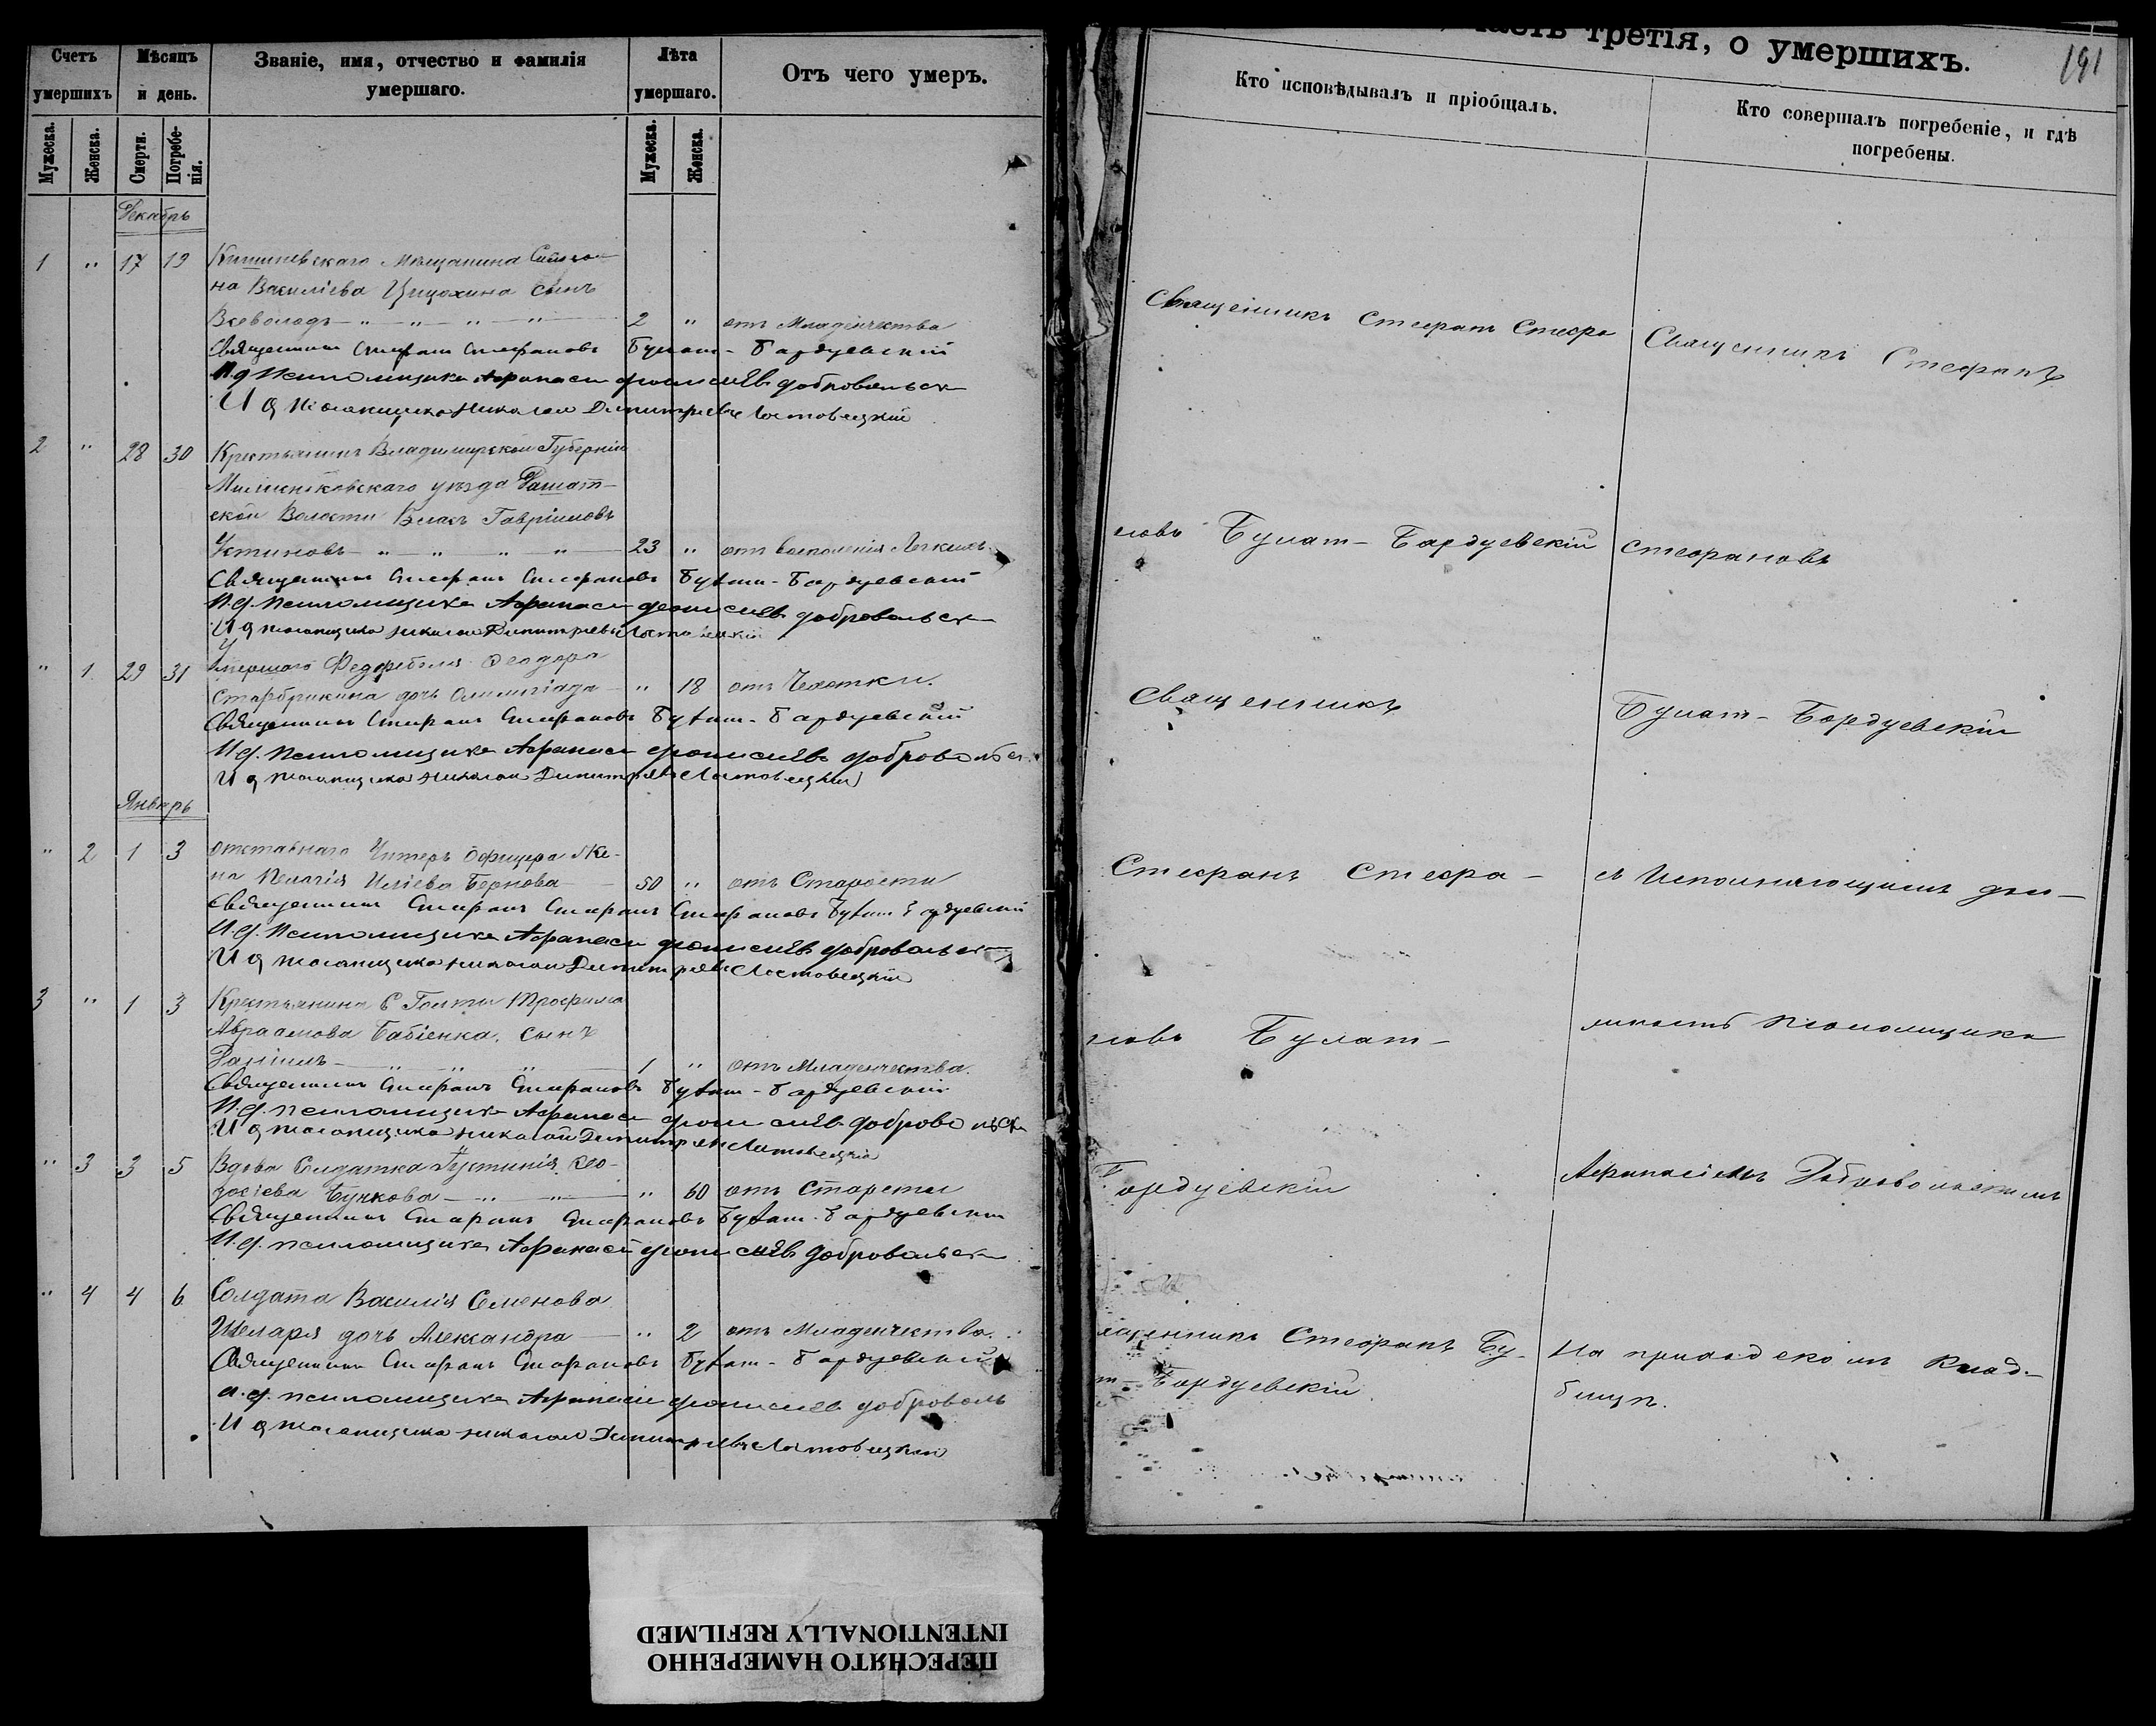 Счетъ умершихъ
Мѣсяцъ и день.
Званіе, имя, отчество и фамилія умершаго.
Лѣта умершаго.
Отъ чего умеръ.
Мужеска.
Женска.
Смерти.
Погребенія.
Мужеска.
Женска.
Декабрь
1 " 17 19 Кишиневскаго Мѣщанина
на Василіева сынъ
Всеволодъ 2 " отъ Младенчества
Священникъ Стефанъ Стефановъ Булат-Бардуевскій
И.д. Псаломщика Афанасій Доброволск
И д Псаломщика Николай Димитріевъ Лостовецкій
2 " 28 30 Крестьянинъ Владимирской Губерніи
уѣзда
ской Волости Власъ Гавріиловъ
Устиновъ 23 " отъ воспаленія Легкихъ
Священникъ Стефанъ Стефановъ Булат-Бардуевскій
И.д. Псаломщика Афанасій Добровольск
И д Псаломщика Николай Димитріевъ
" 1 29 31 Умершаго Феодора
дочь Олимпіада " 18 отъ Чахотки.
Священникъ Стефанъ Стефановъ Булат-Бардуевскій
И.д. Псаломщика Афанасій
И д Псаломщика Николай Димитріевъ Лостовецкій
Январь
" 2 1 3 Отставнаго Унтеръ Офицера Же-
на Пелагія Иліева Бернова 50 " отъ Старости
Священникъ Стефанъ Стефанъ Стефановъ Булат Бардуевскій
И.д. Псаломщика Афанасій Добровольск
И д Псаломщика Николай Димитріевъ Лостовецкій
3 " 1 3 Крестьянина С Голты Трофима
Авраамова Бабіенка, сынъ
Даніилъ 1 " отъ Младенчества.
Священникъ Стефанъ Стефановъ Булат-Бардуевскій
И.д. Псаломщика Афанасій
И д Псаломщика Николай Димитріевъ Лостовецкій
" 3 3 5 Вдова Солдатка Іустинія Ѳео-
досіева Бункова " 60 отъ Старости
Священникъ Стефанъ Стефановъ Булат-Бардуевскій
И.д. Псаломщика Афанасій Добровольск
" 4 4 6 Солдата Василія Семенова
Шеларя дочь Александра " 2 отъ Младенчества.
Священникъ Стефанъ Стефановъ Булат-Бардуевскій
И.д. Псаломщика Афанасій Доброволь
И д Псаломщика Николай Димитріевъ Лостовецкій
часть третія, о умершихъ.
191
Кто исповѣдывалъ и пріобщалъ.
Кто совершалъ погребеніе, и гдѣ погребены.
Священникъ Стефанъ Стефа
новъ Булат-Бардуевскій
Священникъ
Стефанъ Стефа-
новъ Булат-
Бардуевскій
Священникъ Стефанъ Бу-
т-Бардуевскій.
Священникъ Стефанъ
Стефановъ
Булат-Бардуевскій
съ Исполняющимъ дол-
жность Псаломщика
Афанасіемъ Добровольскимъ
На приходскомъ Клад-
бищѣ.
ПЕРЕСНЯТО НАМЕРЕННО
INTENTIONALLY REFILMED